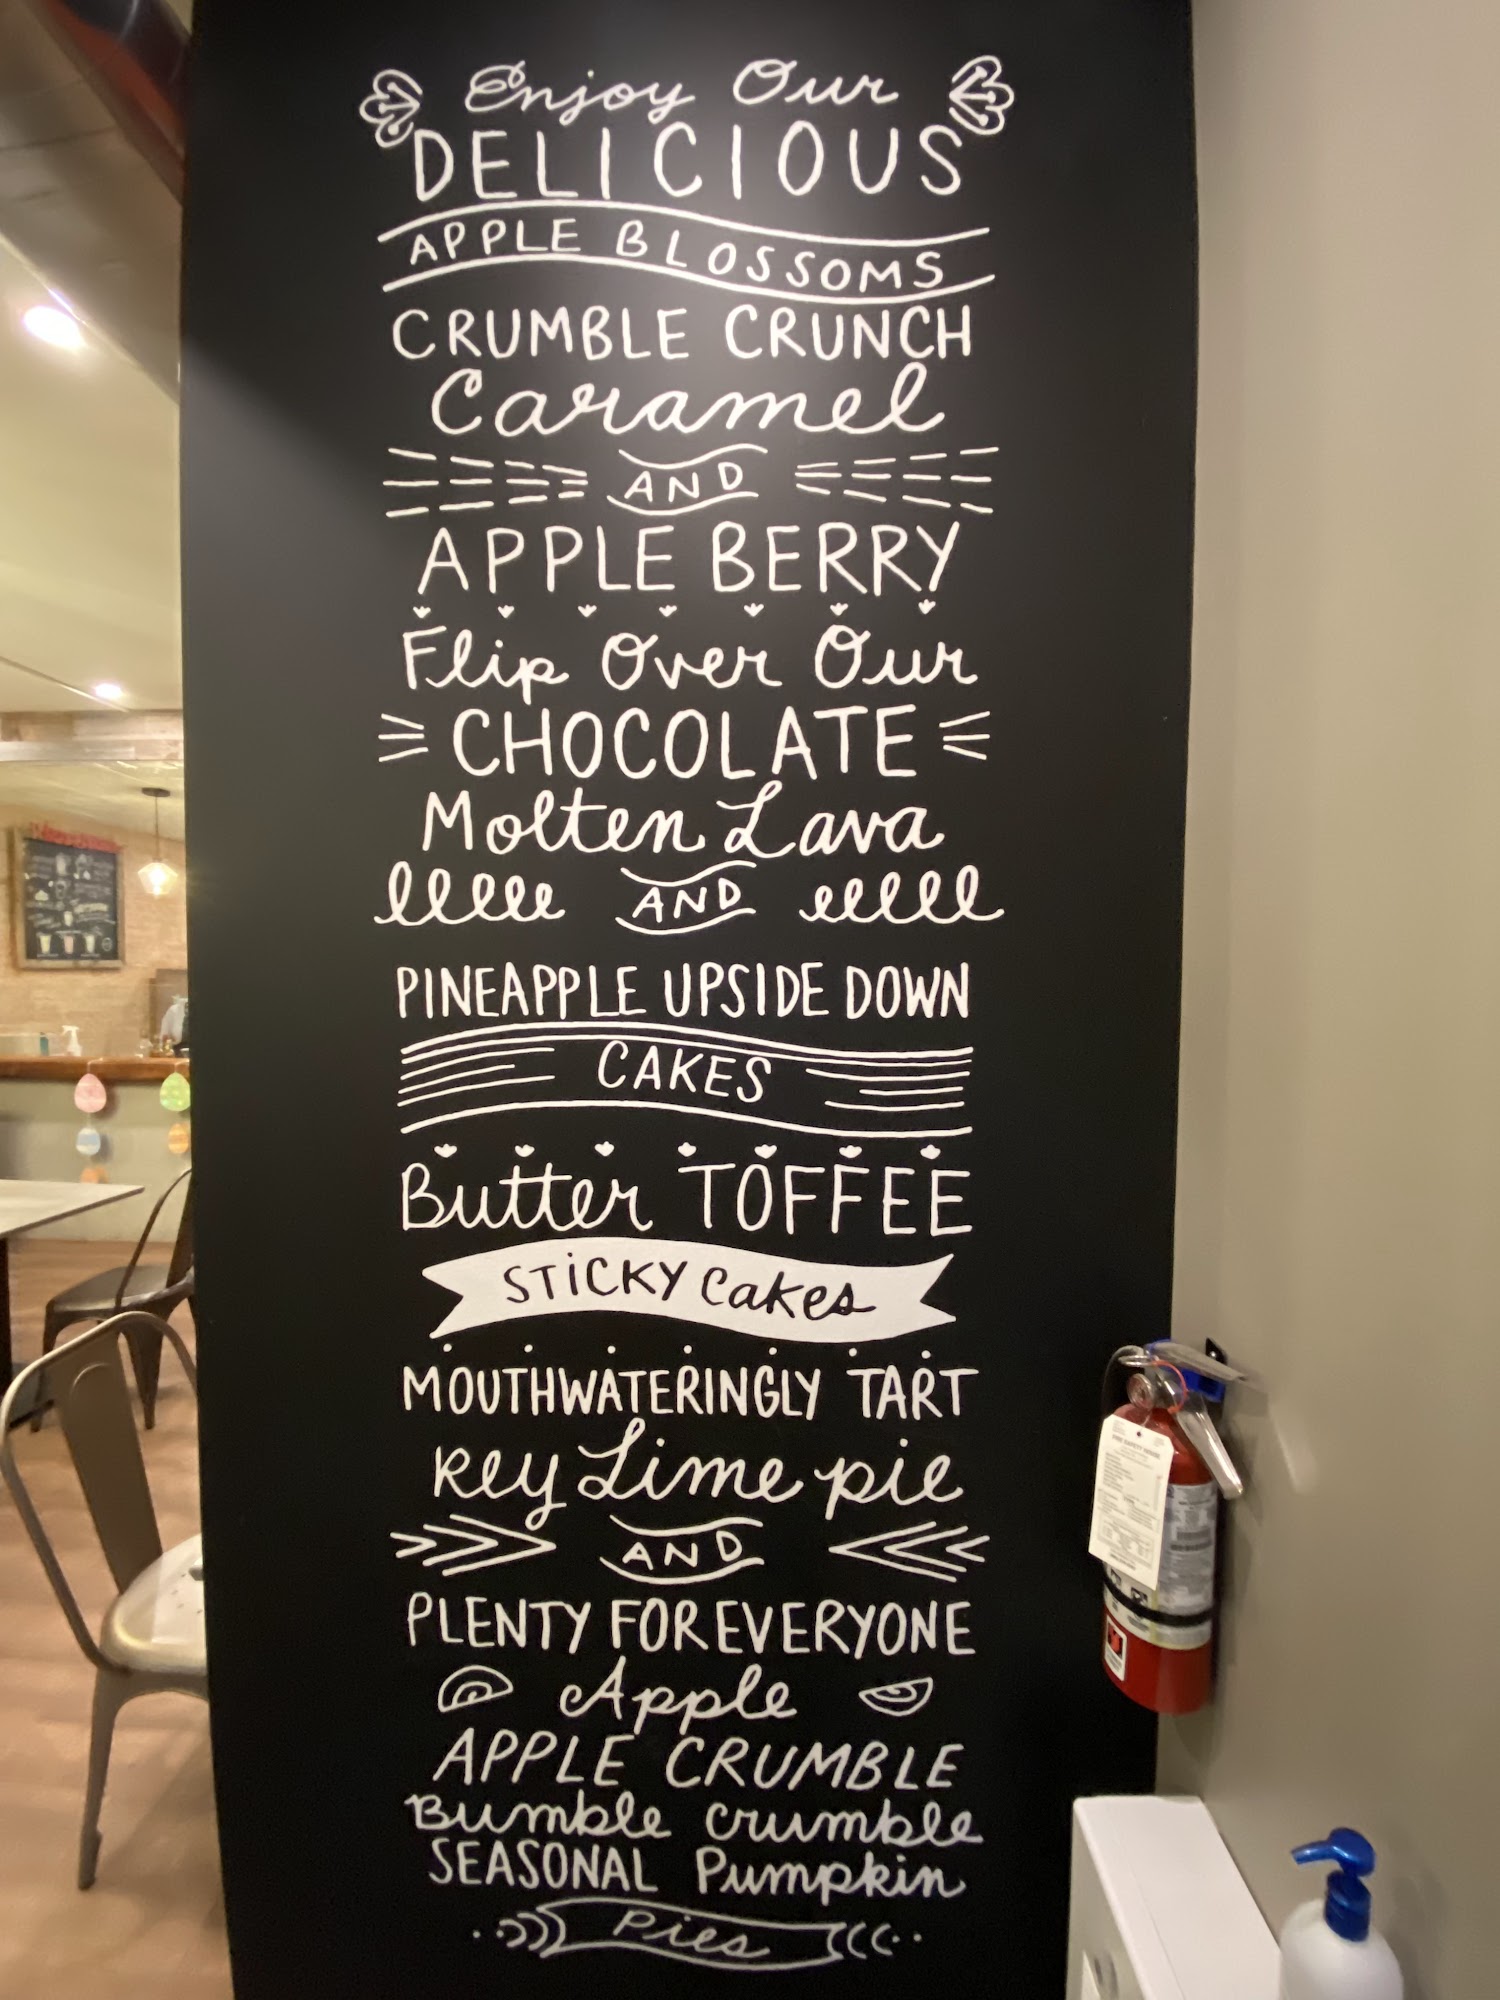 Enjoy Our
DELICIOUS
APPLE BLOSSOMS
CRUMBLE CRUNCH
Caramel
AND
APPLE BERRY
Flip Over Our
CHOCOLATE
Molten Lava
AND
PINEAPPLE UPSIDE DOWN
CAKES
Butter TOFFEE
STiCKY Cakes
MOUTHWATERINGLY TART
Key Lime pie
AND
PLENTY FOR EVERYONE
Apple
APPLE CRUMBLE
Bumble crumble
SEASONAL Pumpkin
Pies